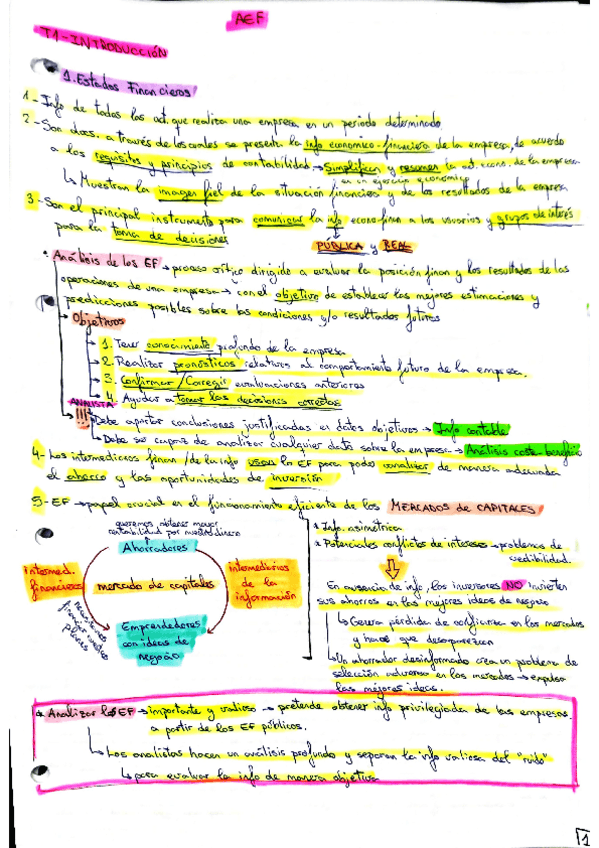 AEF
T1-INTRODUCCIÓN
1. Estados Financieros
1.- Info de todas las act. que realiza una empresa en un periodo determinado
2.- Son docs. a través de los cuales se presenta la info económico-financiera de la empresa, de acuerdo
a los requisitos y principios de contabilidad → Simplifican y resumen la act. econ. de la empresa
en un ejercicio económico
↳ Muestran la imagen fiel de la situación financiera y de los resultados de la empresa
3.- Son el principal instrumento para comunicar la info econo-finan a los usuarios y grupos de interés
para la toma de decisiones
PÚBLICA y REAL
* Análisis de los EF → proceso crítico dirigido a evaluar la posición finan y los resultados de las
operaciones de una empresa → con el objetivo de establecer las mejores estimaciones y
predicciones posibles sobre las condiciones y/o resultados futuros
→ Objetivos
→ 1. Tener conocimiento profundo de la empresa
→ 2. Realizar pronósticos relativos al comportamiento futuro de la empresa.
→ 3. Confirmar/Corregir evaluaciones anteriores
→ 4. Ayudar a tomar las decisiones correctas
ANALISTA
!!! Debe aportar conclusiones justificadas en datos objetivos → Info contable
↳ Debe ser capaz de analizar cualquier dato sobre la empresa → Análisis coste-beneficio
4.- Los intermediarios finan / de la info usan la EF para poder canalizar de manera adecuada
el ahorro y las oportunidades de inversión
5.- EF → papel crucial en el funcionamiento eficiente de los MERCADOS de CAPITALES
queremos obtener mayor
rentabilidad por nuestro dinero
Ahorradores
intermed.
financieros
mercado de capitales
intermediarios
de la
información
Emprendedores
con ideas de
negocio
necesitamos
financiar nuestros
planes
* Info. asimétrica
* Potenciales conflictos de intereses → problemas de
credibilidad.
En ausencia de info, los inversores NO invierten
sus ahorros en las mejores ideas de negocio
↳ Genera pérdida de confianza en los mercados
y hace que desaparezcan
↳ Un ahorrador desinformado crea un problema de
selección adversa en los mercados → expulsa
las mejores ideas.
* Analizar los EF → importante y valioso → pretende obtener info privilegiada de las empresas
a partir de los EF públicos.
↳ Los analistas hacen un análisis profundo y separan la info valiosa del "ruido"
↳ para evaluar la info de manera objetiva
1